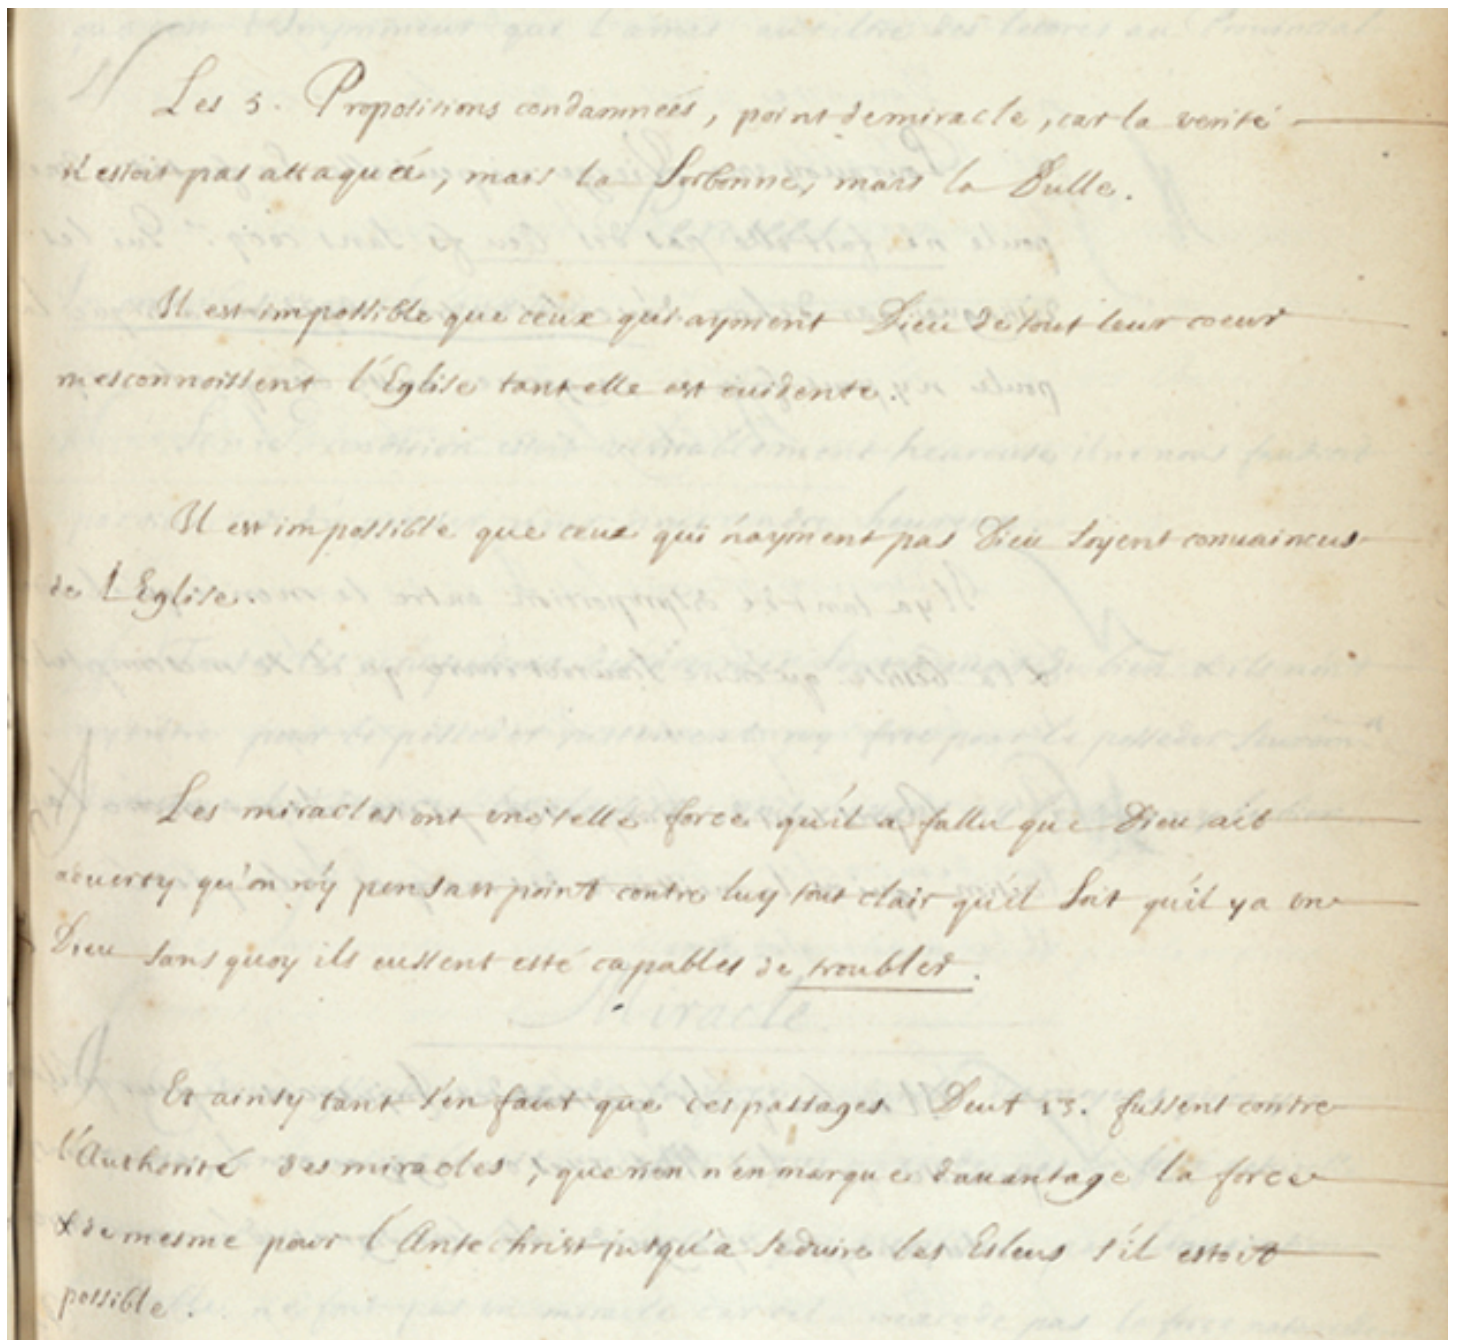 Les 5. Propositions condamnées, point de miracle, car la verité
n'estoit pas attaquée, mais la Sorbonne, mais la Bulle.
Il est impossible que ceux qui ayment Dieu de tout leur coeur
mesconnoissent l'Eglise tant elle est euidente.
Il est impossible que ceux qui n'ayment pas Dieu soyent conuaincus
de l'Eglise.
Les miracles ont vne telle force qu'il a fallu que Dieu ait
aduerty qu'on n'y pensast point contre luy tout clair qu'il soit qu'il y a vn
Dieu sans quoy ils eussent esté capables de troubler.
Et ainsy tant s'en faut que ces passages Deut 13. fussent contre
l'Authorité des miracles, que rien n'en marque dauantage la force
& de mesme pour l'Antechrist jusqu'a seduire les Esleus s'il estoit
possible.